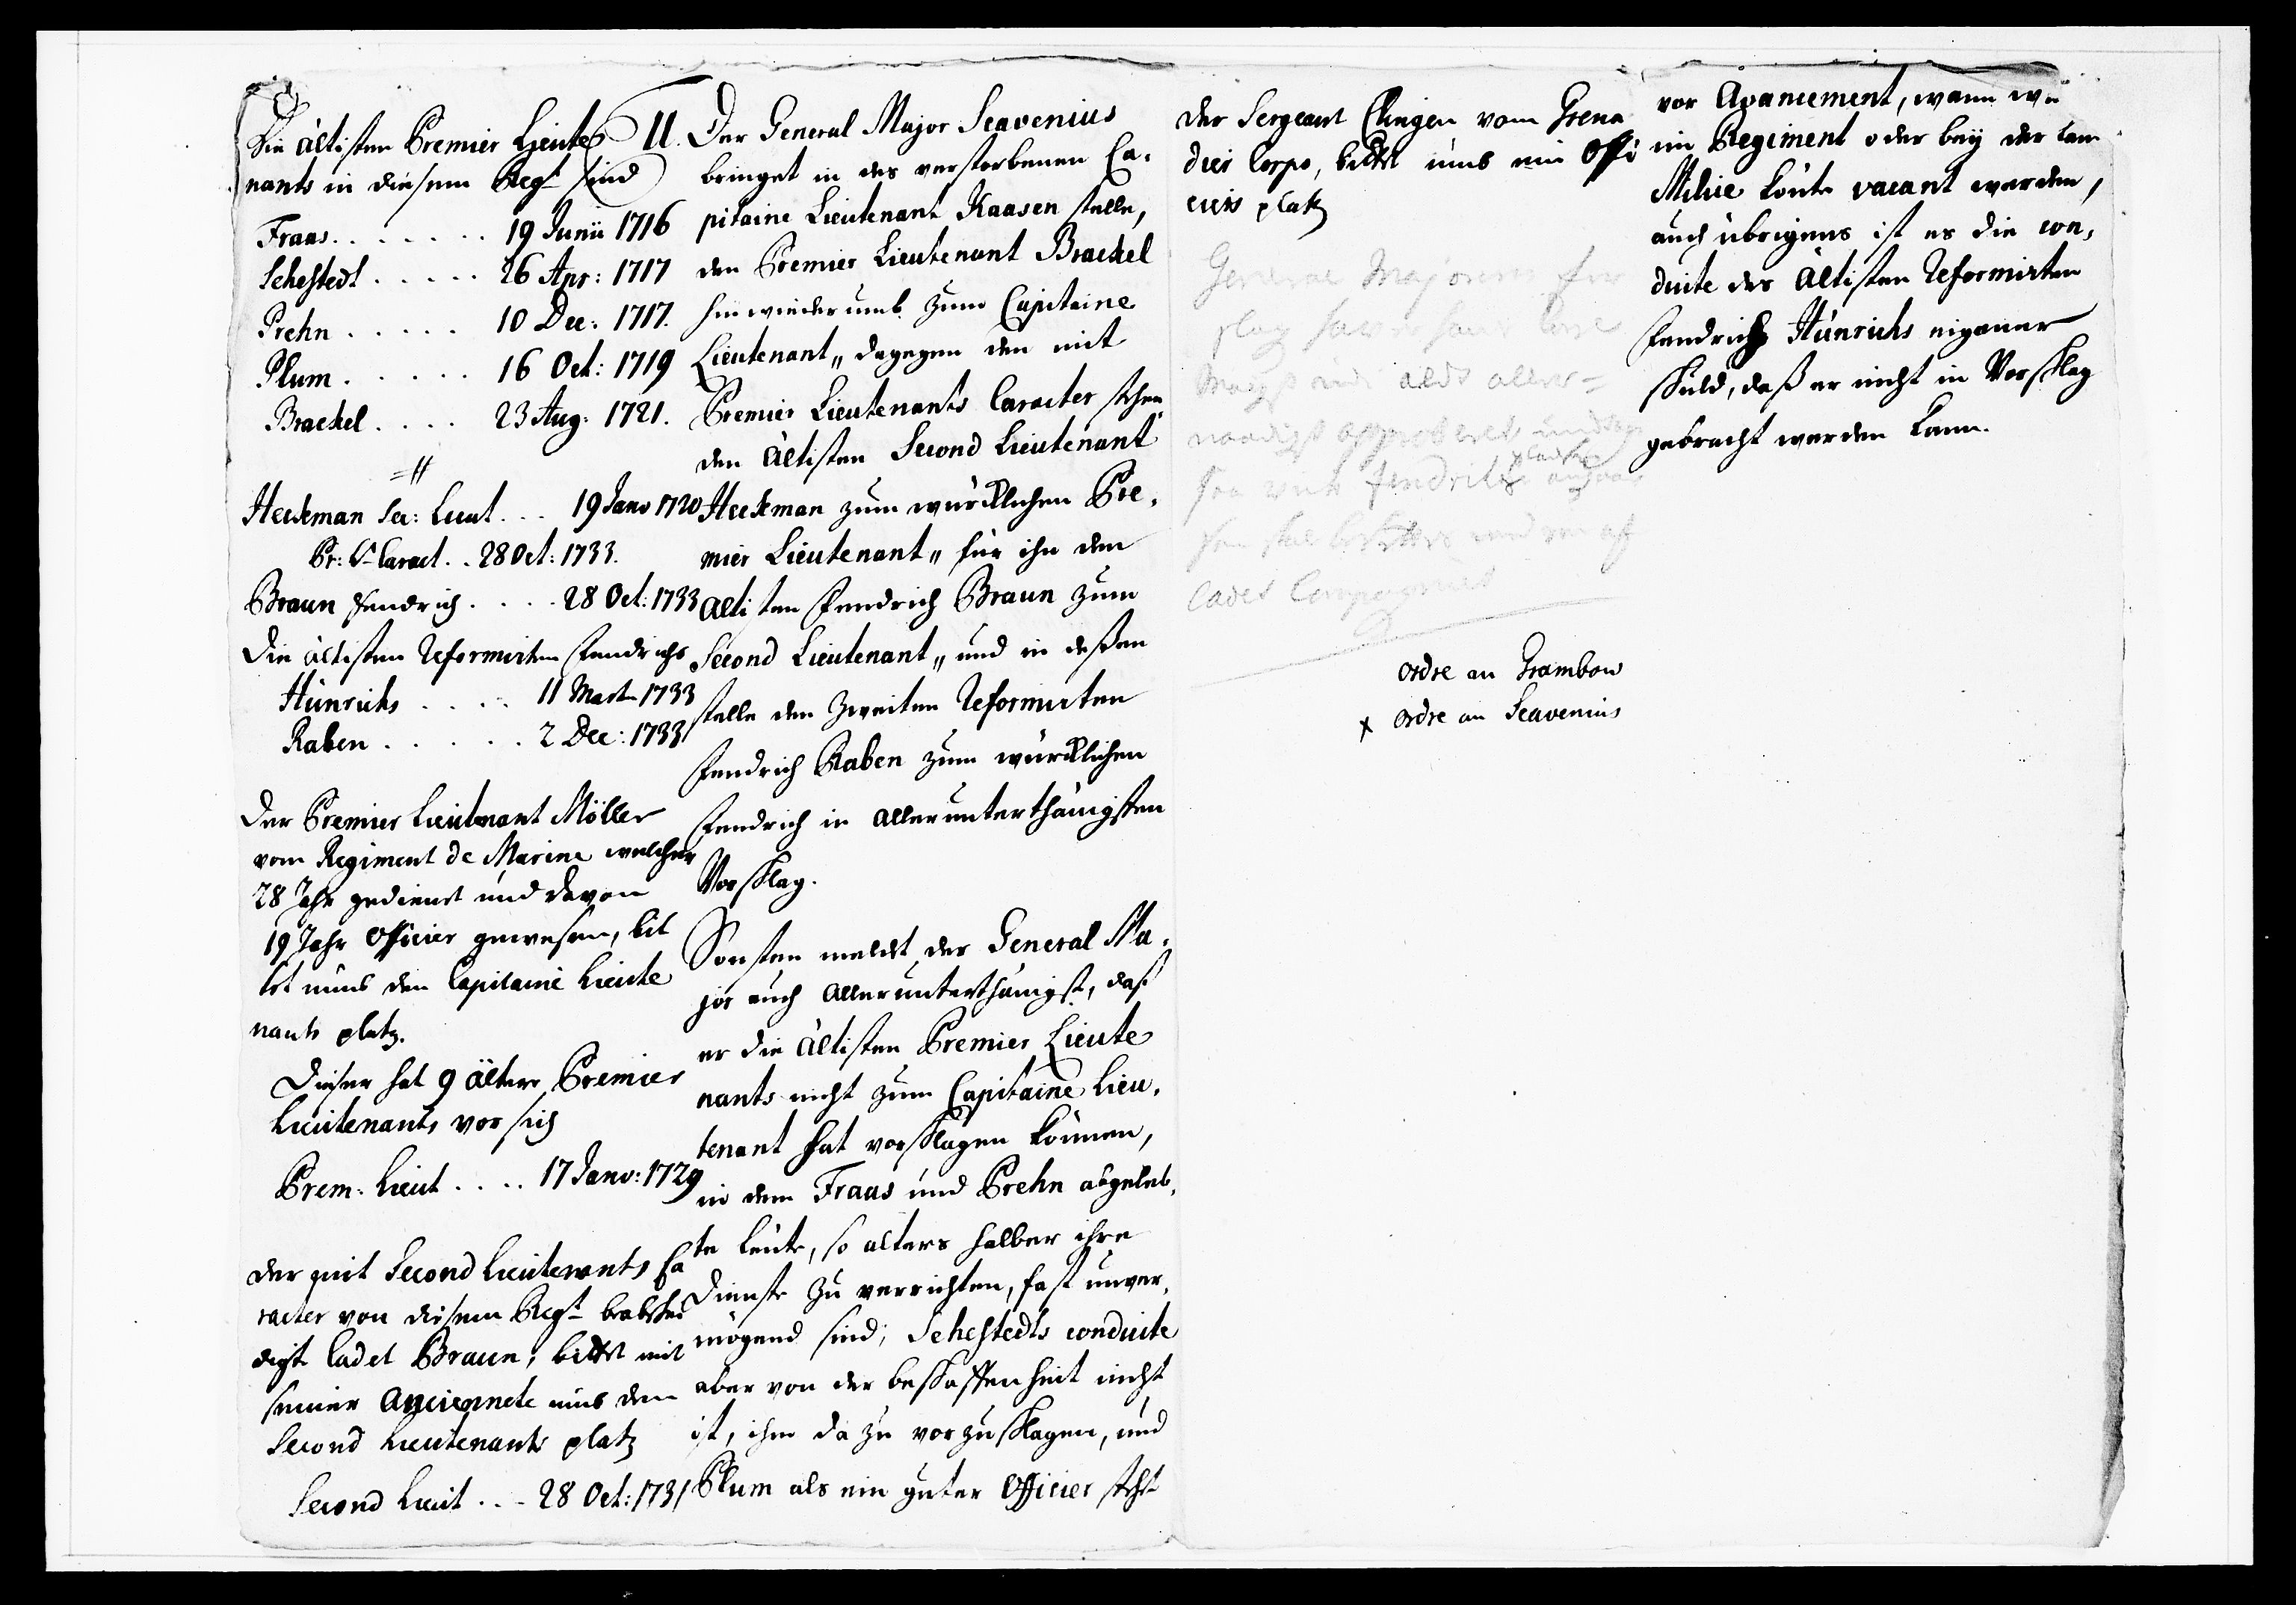 Die ältisten Premier Lieute
nants in diesem Regt sind
Fraas . . . . . . . 19 Junii 1716
Sehestedt . . . . . 26 Apr: 1717
Prehn . . . . . 10 Dec: 1717.
Plum . . . . . 16 Oct: 1719
Brackel . . . . 23 Aug: 1721.
Heckman Sec: Lieut . . . 19 Janv 1720
Pr: Lt Caract . . 28 Oct: 1733.
Braun Fendrich . . . . 28 Oct: 1733
Die ältisten Reformirten Fendrichs
Hünrichs . . . . 11 Mart 1733
Raben . . . . . 2 Dec: 1733
Der Premier Lieutenant Möller
vom Regiment de Marine welcher
28 Jahr gedienet und davon
19 Jahr Officier gewesen, bit
tet umb den Capitaine Lieute
nants platz.
Dieser hat 9 ältere Premier
Lieutenants vor sich
Prem: Lieut . . . . 17 Janv: 1729
Der mit Second Lieutenants Ca
racter von diesem Regt beabschei
digte Cadet Braun, bittet mit
seiner Anciennete umb den
Second Lieutenants platz
Second Lieut . . . 28 Oct: 1731
II. Der General Major Scavenius
bringet in des verstorbenen Ca,
pitaine Lieutenant Kaasen stelle,
den Premier Lieutenant Brackel
hinwiederumb zum Capitaine
Lieutenant,, dagegen den mit
Premier Lieutenants Caracter stehen
den ältisten Second Lieutenant
Heckman zum würcklichen Pre,
mier Lieutenant,, für ihn den
ältisten Fendrich Braun zum
Second Lieutenant,, und in deßen
stelle den zweiten Reformirten
Fendrich Raben zum würcklichen
Fendrich in allerunterthänigsten
Vorschlag.
Sonsten meldet der General Ma,
jor auch allerunterthänigst, daß
er die ältisten Premier Lieute
nants nicht zum Capitaine Lieu,
tenant hat vorschlagen können,
in dem Fraas und Prehn abgeleb,
te Leute, so alters halber ihre
Dienste zu verrichten, fast unver,
mögend sind; Sehestedts conduite
aber von der beschaffenheit nicht
ist, ihm da zu vorzuschlagen, und
Plum als ein guter Officier steht
Der Sergeant Clingen vom Grena
dier Corps, bittet umb ein Offi
ciers platz
General Majorens for
slag
aller=
naadigst approberet
Fendrik
Cadet Compagniet
ordre an Grambow
x ordre an Scavenius
vor Avancement, wann was
im Regiment oder bey der Lan
Milice könte vacant werden,
auch übrigens ist es die con,
duite des ältisten Reformirten
Fendrichs Hünrichs eigener
schuld, daß er nicht in Vorschlag
gebracht werden kann.